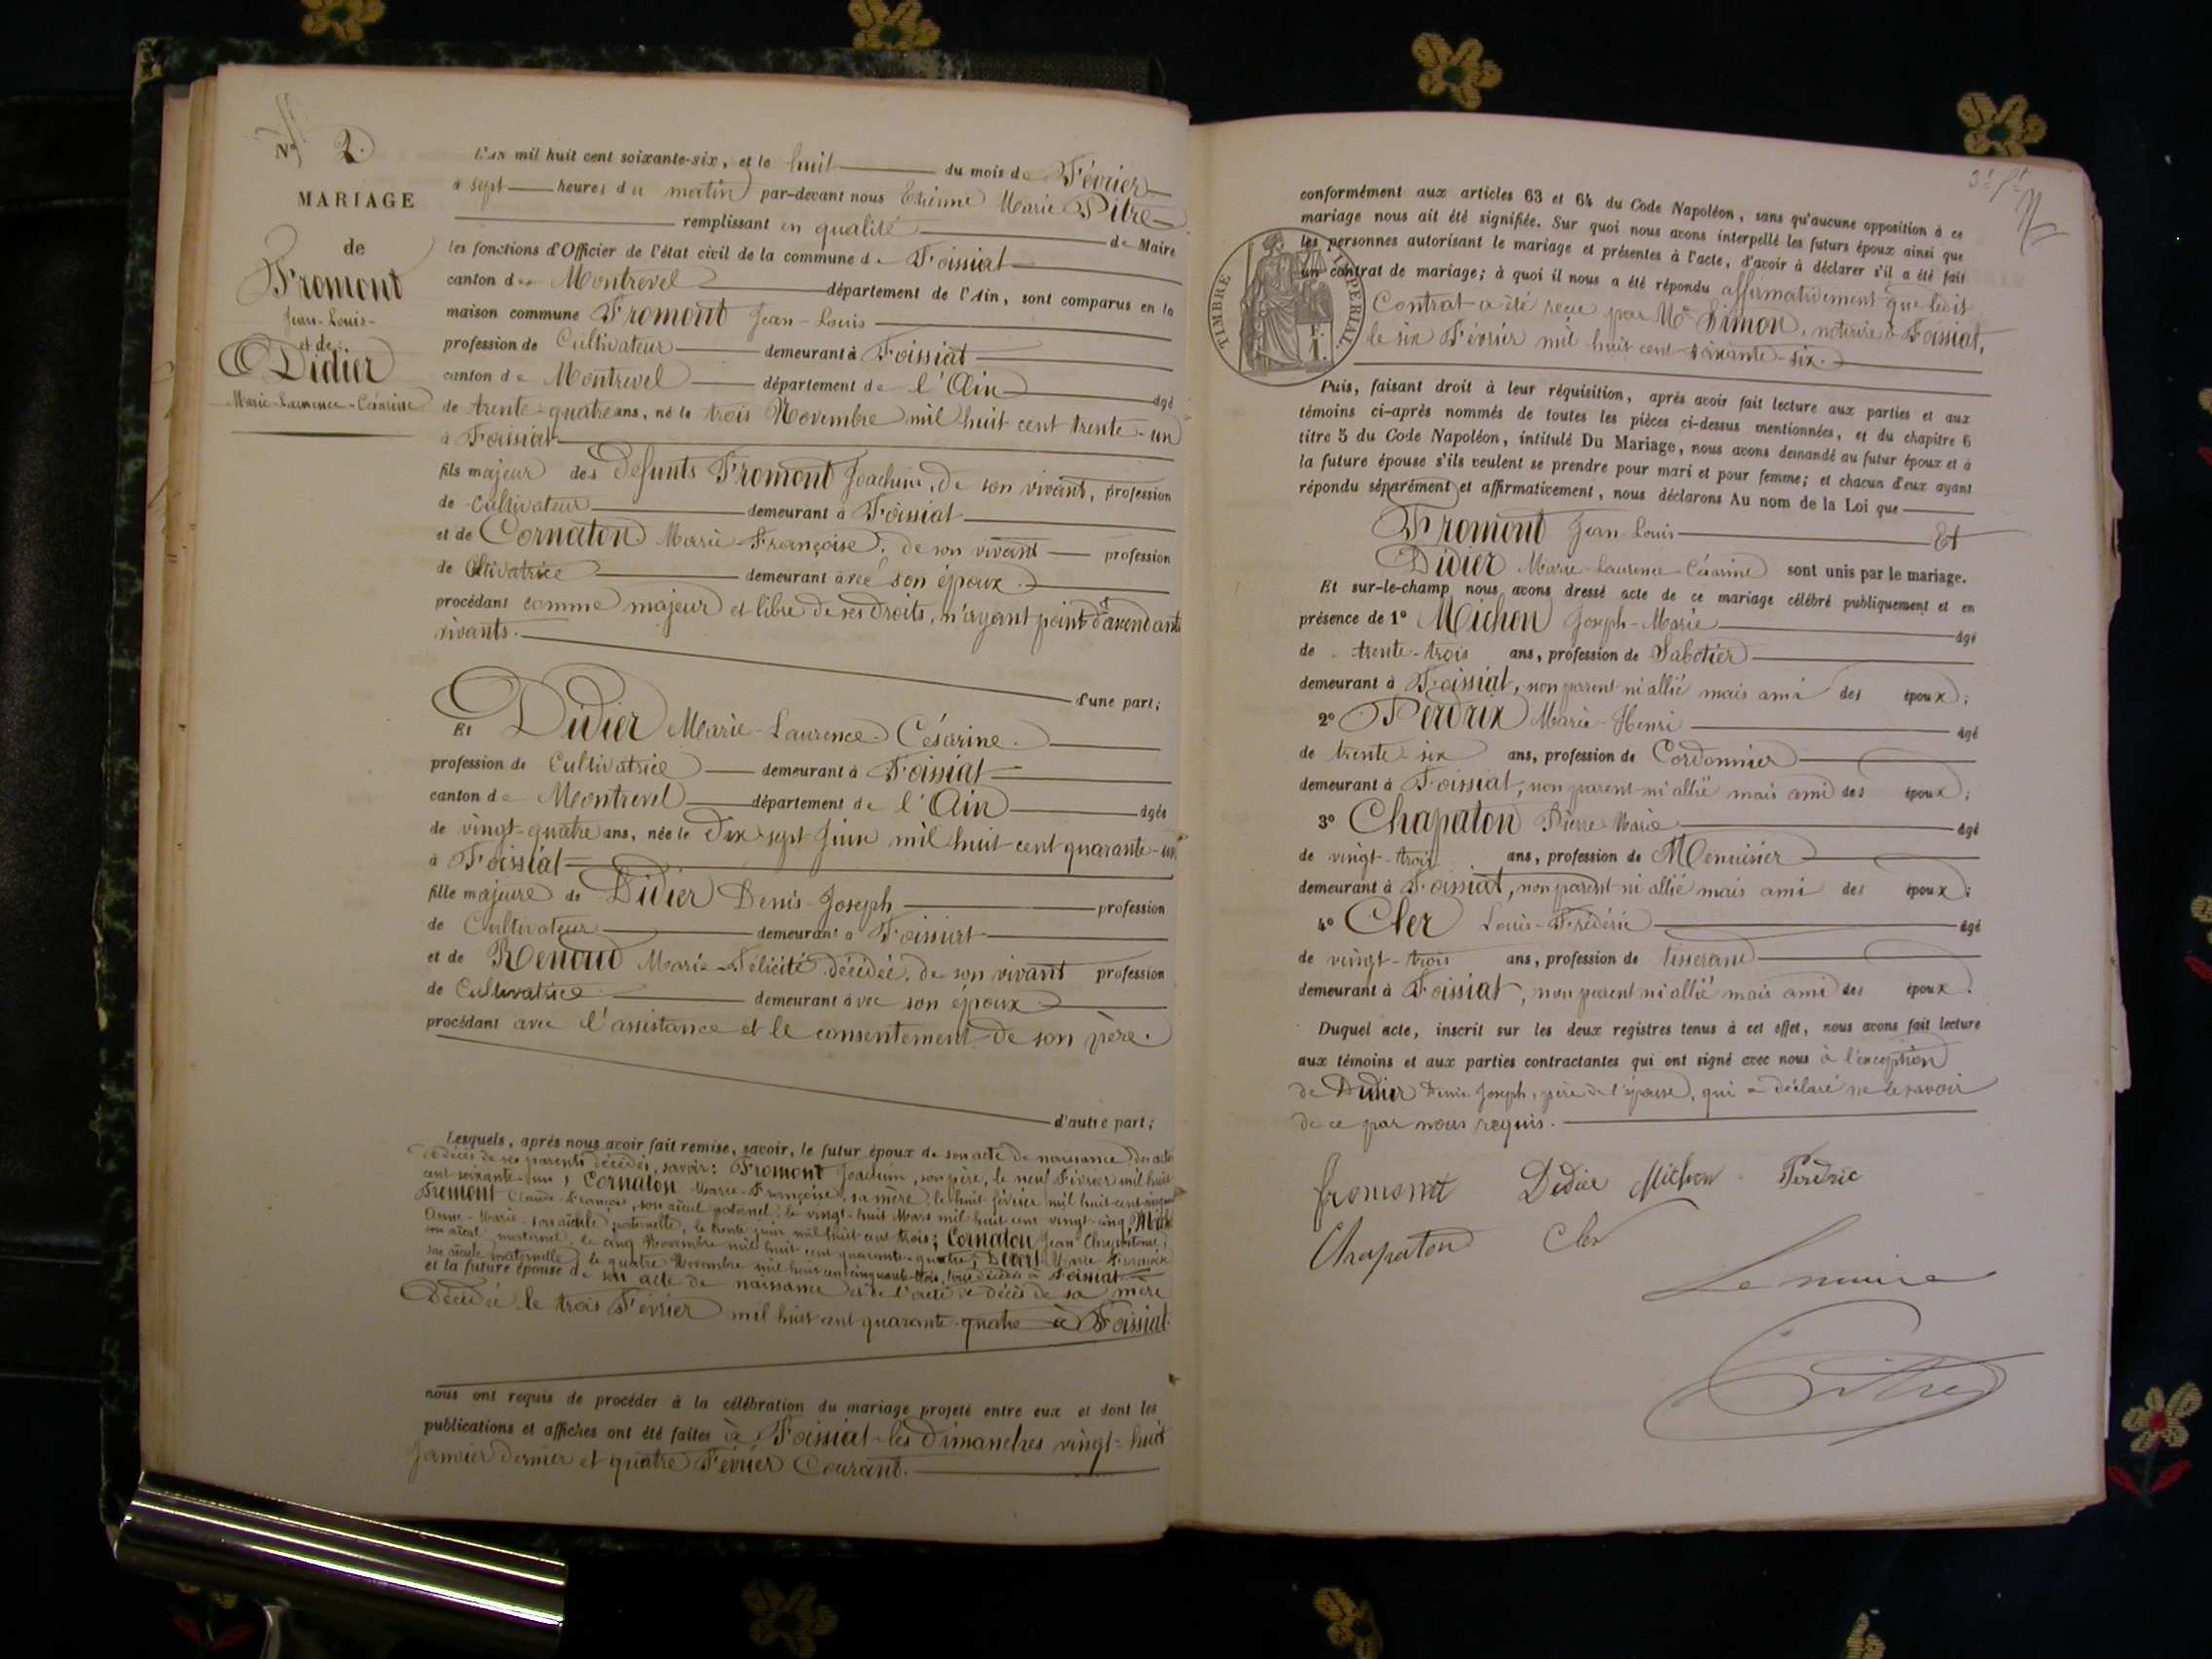 No 2.
MARIAGE
de
Fromont
Jean-Louis-
et de
Didier
Marie-Laurence-Césarine
L'an mil huit cent soixante-six, et le huit du mois de Février
à sept heures du matin par-devant nous Etienne Marie Pitre
remplissant en qualité de Maire
les fonctions d'Officier de l'état civil de la commune de Foissiat
canton de Montrevel département de l'Ain, sont comparus en la
maison commune Fromont Jean-Louis
profession de Cultivateur demeurant à Foissiat
canton de Montrevel département de l'Ain âgé
de trente-quatre ans, né le trois Novembre mil huit cent trente-un
à Foissiat
fils majeur des défunts Fromont Joachim, de son vivant, profession
de Cultivateur demeurant à Foissiat
et de Cornaton Marie-Françoise, de son vivant profession
de Cltivatrice demeurant avec son époux.
procédant comme majeur et libre de ses droits, n'ayant point d'ascendants
vivants.
d'une part;
Et Didier Marie-Laurence-Césarine.
profession de Cultivatrice demeurant à Foissiat
canton de Montrevel département de l'Ain âgée
de vingt-quatre ans, née le Dix-sept Juin mil huit cent quarante-un
à Foissiat
fille majeure de Didier Denis-Joseph profession
de Cultivateur demeurant à Foissiat
et de Renoud Marie-Félicité décédée, de son vivant profession
de Cultivatrice demeurant avec son époux.
procédant avec l'assistance et le consentement de son père.
d'autre part;
Lesquels, après nous avoir fait remise, savoir, le futur époux de son acte de naissance, des actes
de décès de ses parents décédés, savoir: Fromont Joachim, son père, le neuf Février mil huit
cent soixante-un, Cornaton Marie-Françoise, sa mère, le huit février mil huit cent
Fromont Claude-François, son aïeul paternel, le vingt-huit Mars mil huit cent vingt-cinq,
Anne-Marie son aïeule paternelle, le trente juin mil huit cent trois; Cornaton Jean Chrysostome,
son aïeul maternel, le cinq Novembre mil huit cent quarante-quatre, Marie
son aïeule maternelle, le quatre Novembre mil huit cent cinquante-trois, tous décédés à Foissiat
et la future épouse de son acte de naissance et de l'acte de décès de sa mère
Décédée le trois Février mil huit cent quarante-quatre à Foissiat.
nous ont requis de procéder à la célébration du mariage projeté entre eux et dont les
publications et affiches ont été faites à Foissiat les Dimanches vingt-huit
Janvier dernier et quatre Février Courant.
conformément aux articles 63 et 64 du Code Napoléon, sans qu'aucune opposition à ce
mariage nous ait été signifiée. Sur quoi nous avons interpellé les futurs époux ainsi que
les personnes autorisant le mariage et présentes à l'acte, d'avoir à déclarer s'il a été fait
un contrat de mariage; à quoi il nous a été répondu affirmativement que ledit
Contrat a été reçu par Me Simon, notaire à Foissiat,
le six Février mil huit cent soixante-six.
TIMBRE IMPERIAL
1 F.
Puis, faisant droit à leur réquisition, après avoir fait lecture aux parties et aux
témoins ci-après nommés de toutes les pièces ci-dessus mentionnées, et du chapitre 6
titre 5 du Code Napoléon, intitulé Du Mariage, nous avons demandé au futur époux et à
la future épouse s'ils veulent se prendre pour mari et pour femme; et chacun d'eux ayant
répondu séparément et affirmativement, nous déclarons Au nom de la Loi que
Fromont Jean-Louis Et
Didier Marie-Laurence-Césarine sont unis par le mariage.
Et sur-le-champ nous avons dressé acte de ce mariage célébré publiquement et en
présence de 1° Michon Joseph-Marie âgé
de trente-trois ans, profession de Sabotier
demeurant à Foissiat, non parent ni allié mais ami des époux;
2° Perdrix Marie-Henri âgé
de trente-six ans, profession de Cordonnier
demeurant à Foissiat, non parent ni allié mais ami des époux;
3° Chapaton Pierre-Marie âgé
de vingt-trois ans, profession de Menuisier
demeurant à Foissiat, non parent ni allié mais ami des époux;
4° Cler Louis-Frédéric âgé
de vingt-trois ans, profession de tisserand
demeurant à Foissiat, non parent ni allié mais ami des époux.
Duquel acte, inscrit sur les deux registres tenus à cet effet, nous avons fait lecture
aux témoins et aux parties contractantes qui ont signé avec nous à l'exception
de Didier Denis Joseph, père de l'épouse, qui a déclaré ne le savoir
de ce par nous requis.
fromont Didier Michon Perdrix
Chapaton Cler
Le maire
Pitre